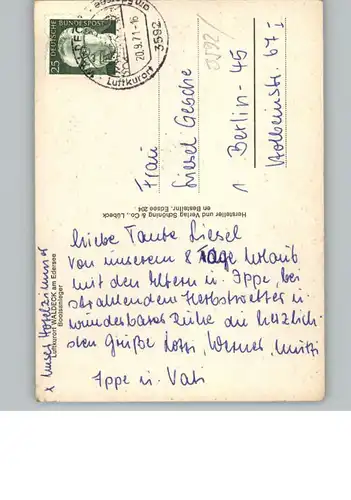 25
DEUTSCHE BUNDESPOST
20.9.71-16
3592
Luftkurort
Frau
Liesel Gesche
1 Berlin-45
Holbeinstr. 67 I
Hersteller und Verlag Schöning & Co., Lübeck
Bestellnr. Edsee 204
Luftkurort WALDECK am Edersee
Bootsanleger
x Unser Hotelzimmer
Liebe Tante Liesel
Von unserem 8 Tage Urlaub
mit den Eltern u. Ippe, bei
strahlendem Herbstwetter u.
wunderbarer Ruhe die herzlich-
sten Grüße Lotti, Werner, Mutti
Ippe u. Vati